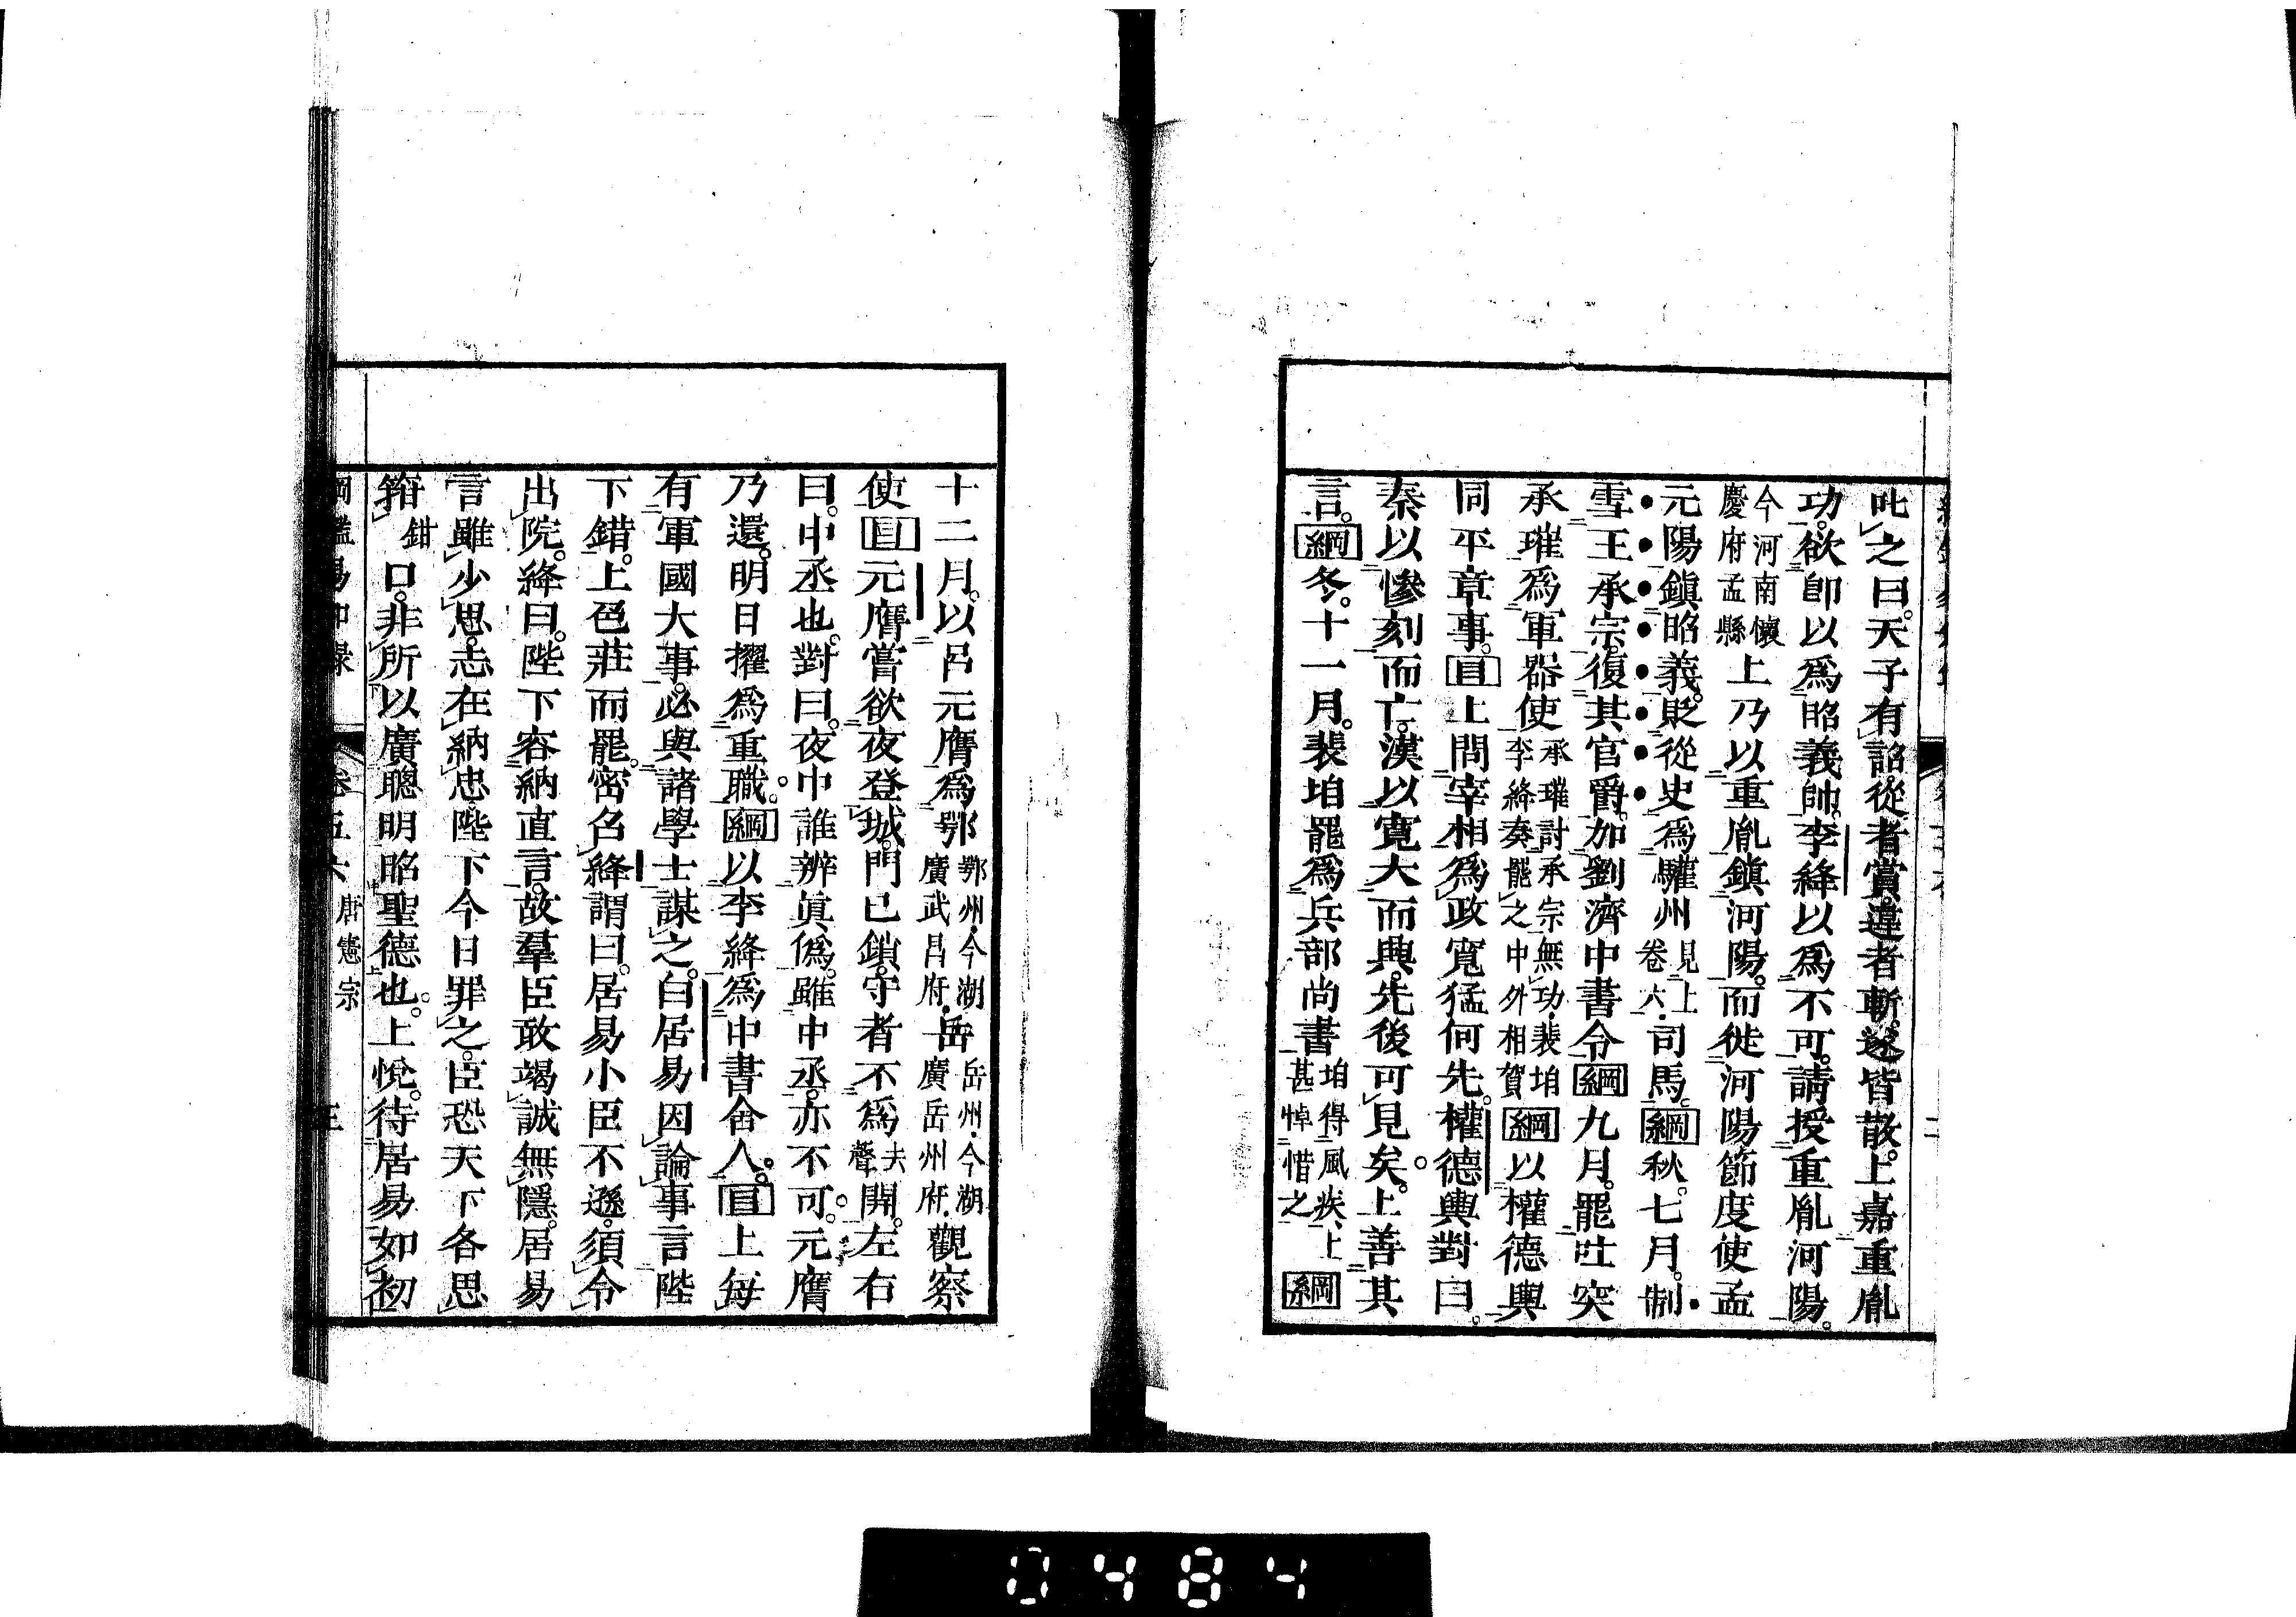 叱之曰。天子有詔。從者賞。違者斬。遂皆散。上嘉重胤
功。欲卽以爲昭義帥。李絳以爲不可。請授重胤河陽。
今河南懷慶府孟縣上乃以重胤鎭河陽。而徙河陽節度使孟
元陽鎭昭義。貶從史爲驩州見上卷六。司馬。綱秋。七月。制
雪王承宗。復其官爵。加劉濟中書令綱九月。罷吐突
承璀爲軍器使承璀討承宗無功。裴垍李絳奏罷之中外相賀綱以權德輿
同平章事。目上問宰相爲政寬猛何先。權德輿對曰。
秦以慘刻而亡。漢以寬大而興。先後可見矣。上善其
言。綱冬。十一月。裴垍罷爲兵部尚書垍得風疾、上甚悼惜之綱
十二月。以呂元膺爲鄂鄂州。今湖廣武昌府。岳岳州。今湖廣岳州府。觀察
使目元膺嘗欲夜登城。門已鎖。守者不爲去聲開。左右
曰。中丞也。對曰。夜中誰辨眞僞。雖中丞。亦不可。元膺
乃還。明日擢爲重職。綱以李絳爲中書舍人。目上每
有軍國大事。必與諸學士謀之。白居易因論事言陛
下錯。上色莊而罷。密召絳謂曰。居易小臣不遜。須令
出院。絳曰。陛下容納直言。故羣臣敢竭誠無隱。居易
言雖少思。志在納忠。陛下今日罪之。臣恐天下各思
箝鉗口。非所以廣聰明昭聖德也。上悅。待居易如初
綱鑑易知錄 卷五六 唐憲宗 三